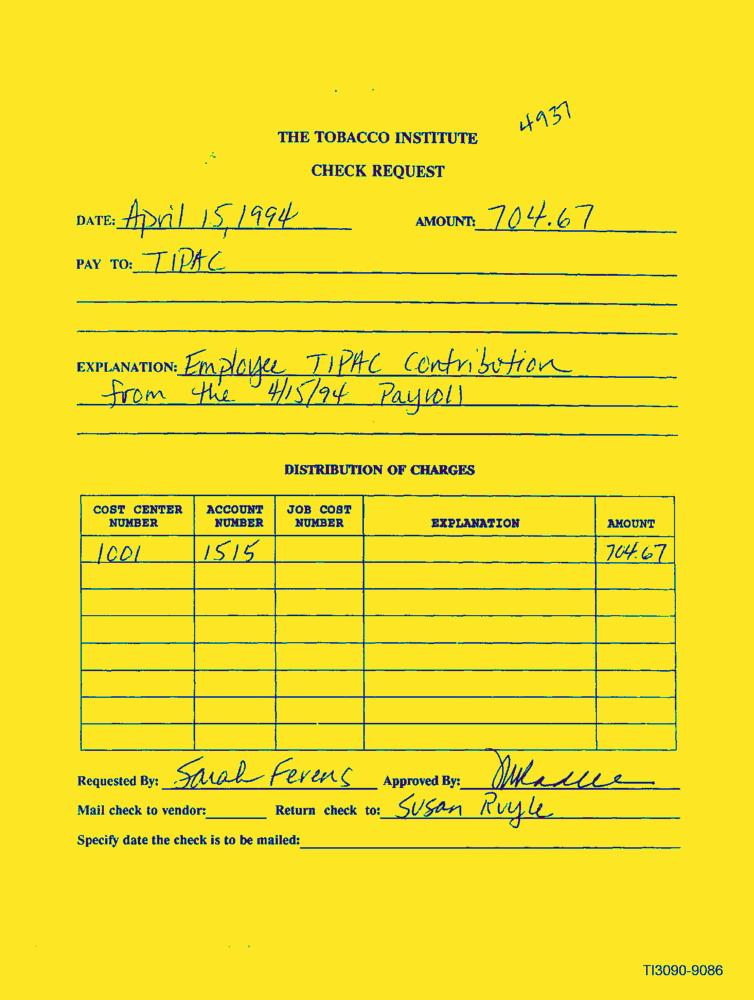 4937
THE TOBACCO INSTITUTE
CHECK REQUEST
DATE: April 15, 1994 AMOUNT: 704.67
PAY TO: TIPAC
EXPLANATION: Employee TIPAC Contribution
from the 4/15/94 Payroll
DISTRIBUTION OF CHARGES
COST CENTER NUMBER ACCOUNT NUMBER JOB COST NUMBER EXPLANATION AMOUNT
1001 1515 704.67
Requested By: Sarah Ferens Approved By:
Mail check to vendor: Return check to: Susan Ruyle
Specify date the check is to be mailed:
TI3090-9086